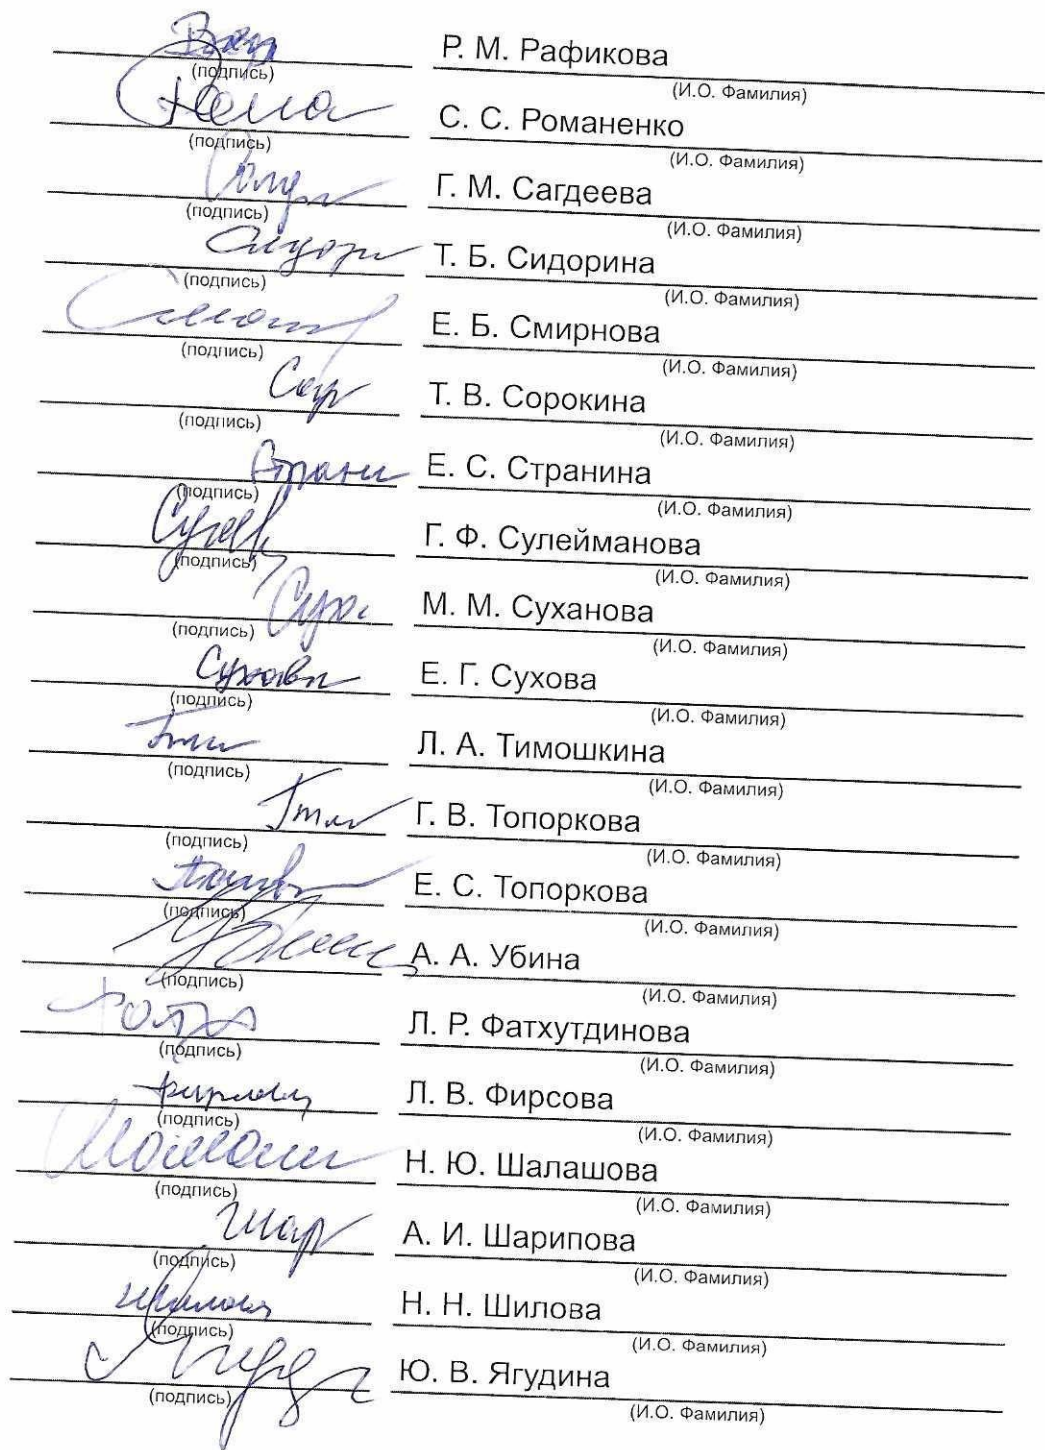 Р. М. Рафикова
(подпись) (И.О. Фамилия)
С. С. Романенко
(подпись) (И.О. Фамилия)
Г. М. Сагдеева
(подпись) (И.О. Фамилия)
Т. Б. Сидорина
(подпись) (И.О. Фамилия)
Е. Б. Смирнова
(подпись) (И.О. Фамилия)
Т. В. Сорокина
(подпись) (И.О. Фамилия)
Е. С. Странина
(подпись) (И.О. Фамилия)
Г. Ф. Сулейманова
(подпись) (И.О. Фамилия)
М. М. Суханова
(подпись) (И.О. Фамилия)
Е. Г. Сухова
(подпись) (И.О. Фамилия)
Л. А. Тимошкина
(подпись) (И.О. Фамилия)
Г. В. Топоркова
(подпись) (И.О. Фамилия)
Е. С. Топоркова
(подпись) (И.О. Фамилия)
А. А. Убина
(подпись) (И.О. Фамилия)
Л. Р. Фатхутдинова
(подпись) (И.О. Фамилия)
Л. В. Фирсова
(подпись) (И.О. Фамилия)
Н. Ю. Шалашова
(подпись) (И.О. Фамилия)
А. И. Шарипова
(подпись) (И.О. Фамилия)
Н. Н. Шилова
(подпись) (И.О. Фамилия)
Ю. В. Ягудина
(подпись) (И.О. Фамилия)